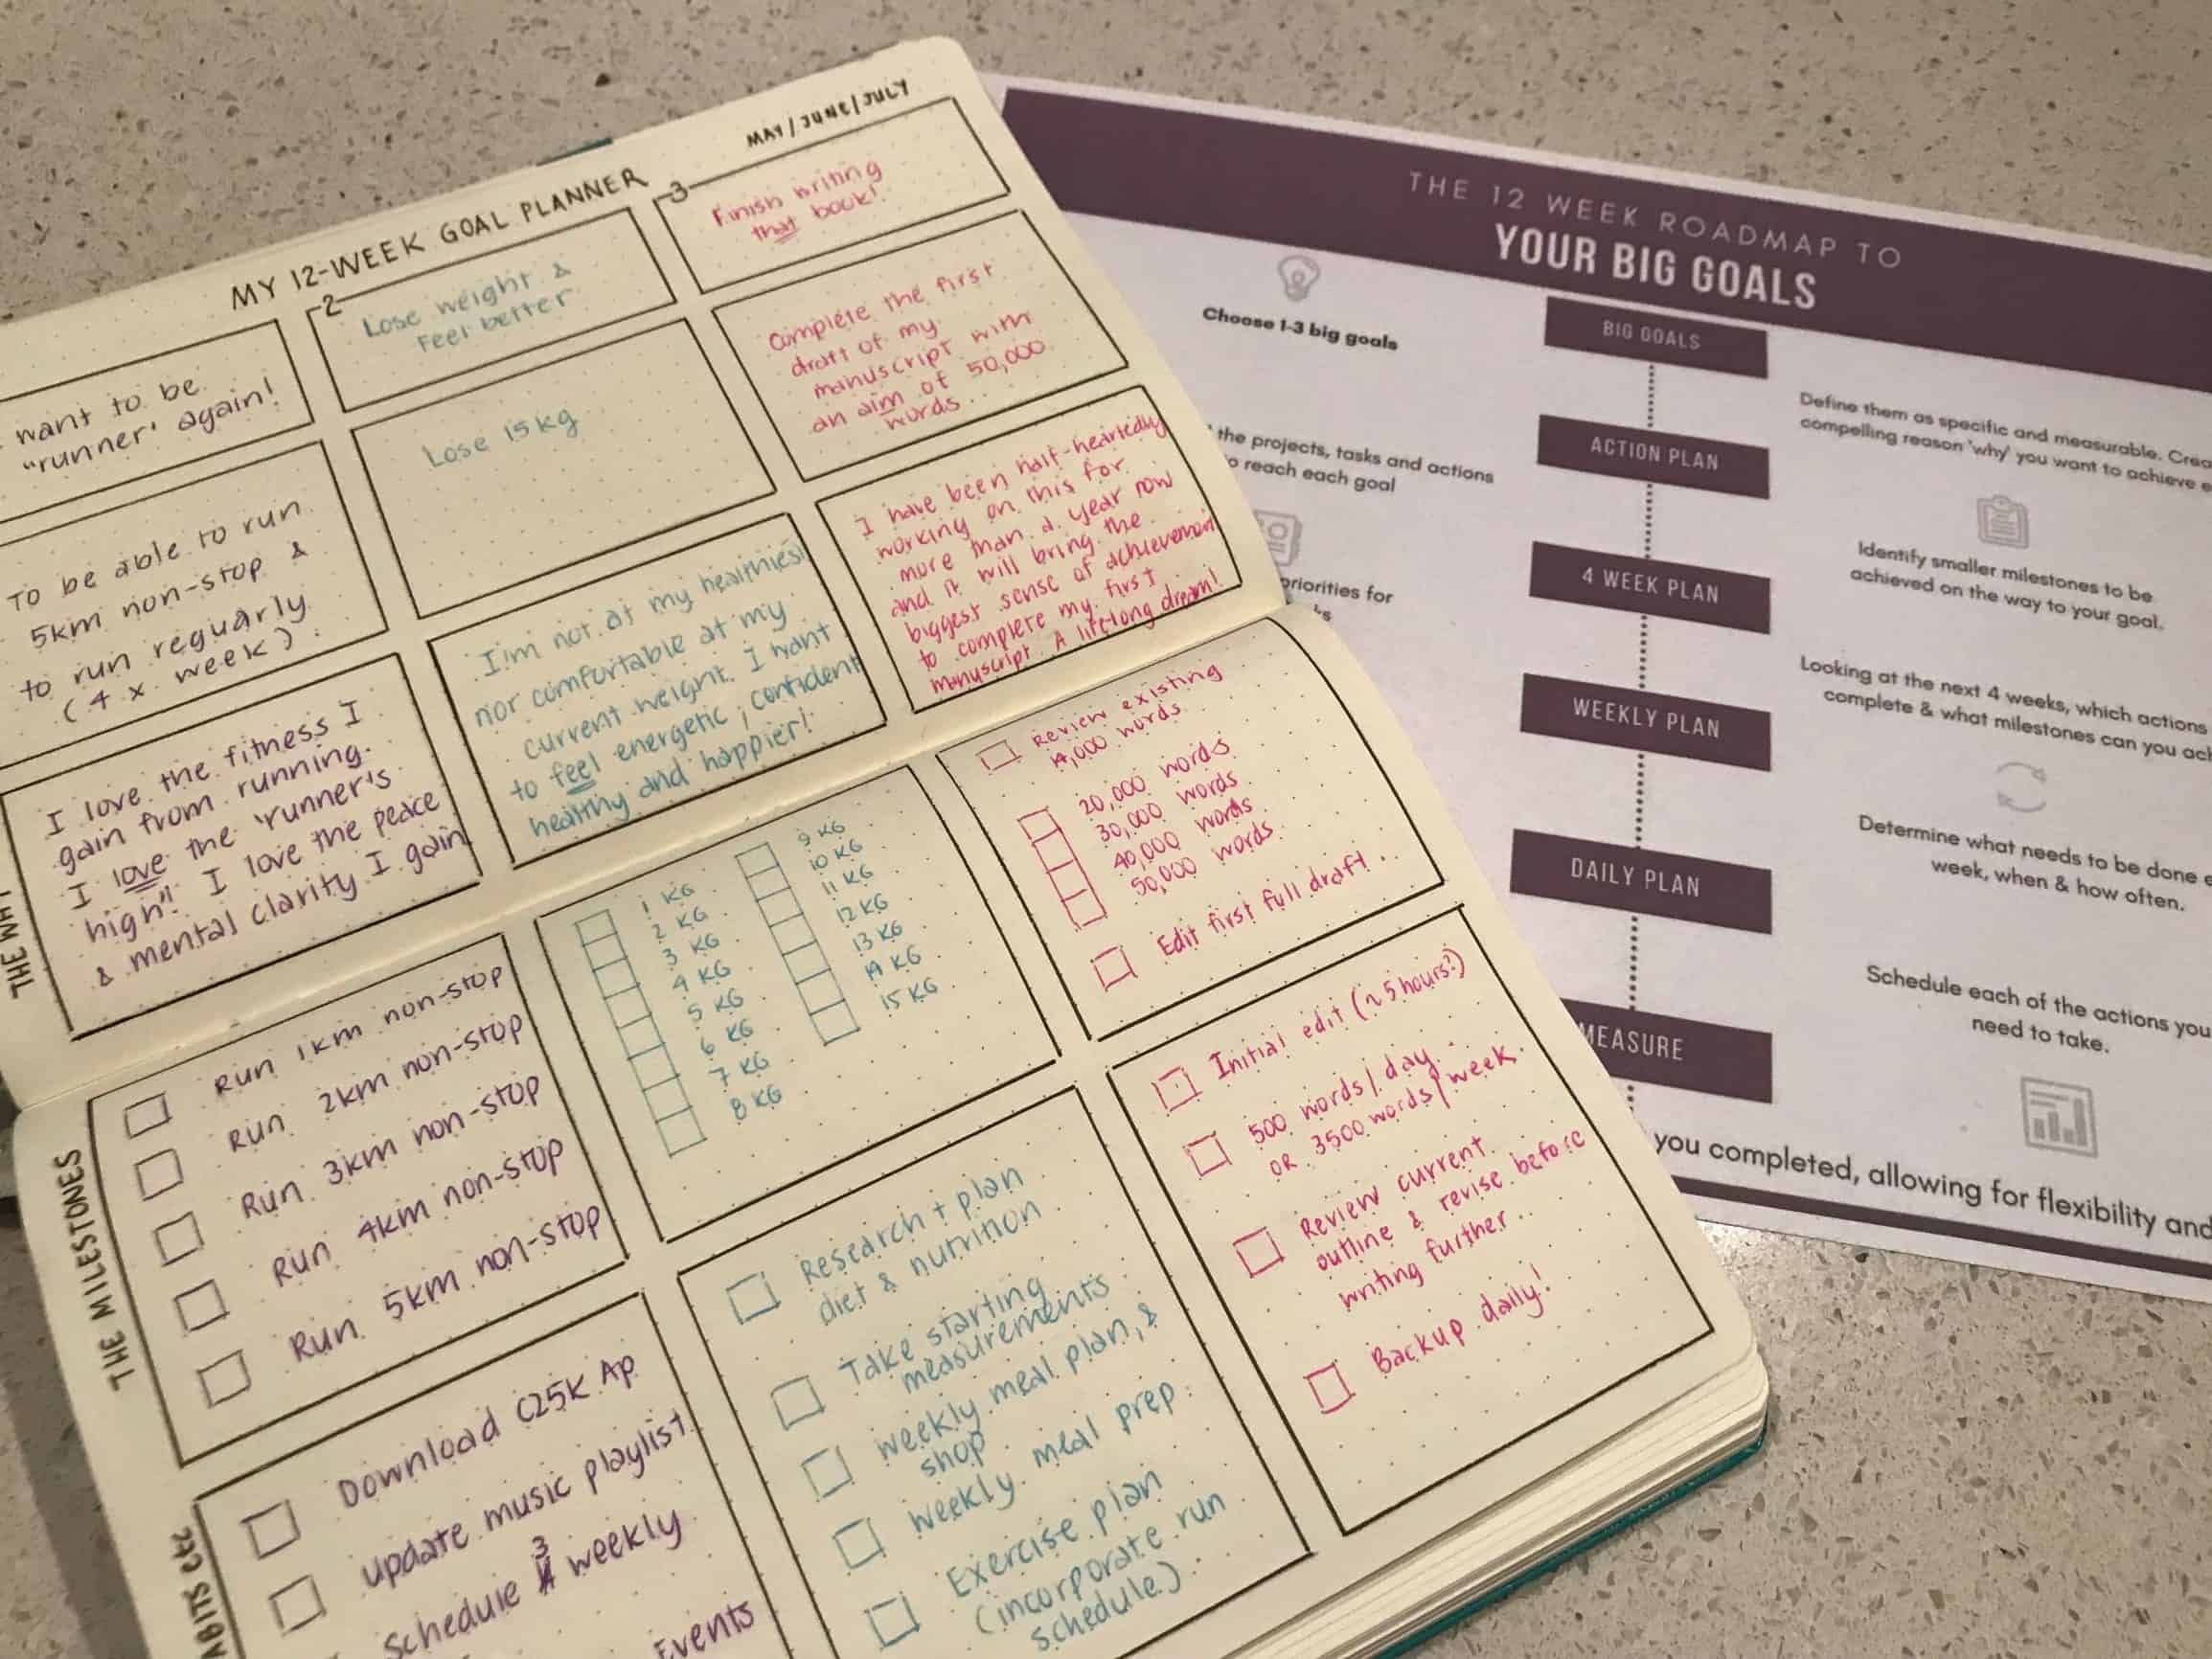 MY 12-WEEK GOAL PLANNER
MAY/JUNE/JULY
want to be
"runner' again!
2
Lose weight &
Feel better
3
Finish writing
that book!
To be able to run
5km non-stop &
to run reguarly
(4 x week).
Lose 15kg
Complete the first
draft of my
manuscript with
an aim of 50,000
words..
THE WHY
I love the fitness I
gain from running.
I love the 'runner's
high"! I love the peace
& mental clarity I gain
I'm not at my healthiest
nor comfortable at my
current weight. I want
to feel energetic, confident
healthy and happier!
I have been half-heartedly
working on this for
more than a year now
and it will bring the
biggest sense of achievement
to complete my first
manuscript. A lifelong dream!
THE MILESTONES
Run 1km non-stop
Run 2km non-stop
Run 3km non-stop
Run 4km non-stop
Run 5km non-stop
1 KG
2 KG
3 KG
4 KG
5 KG
6 KG
7 KG
8 KG
9 KG
10 KG
11 KG
12 KG
13 KG
14 KG
15 KG
Review existing
14,000 words
20,000 words
30,000 words
40,000 words
50,000 words
Edit first full draft.
ABITS etc
Download C25K Ap
update music playlist
Schedule 3 weekly
Events
Research + plan
diet & nutrition
Take starting
measurements
weekly meal plan, &
shop
weekly meal prep
Exercise plan
(incorporate run
schedule)
Initial edit (~5hours?)
500 words/day
OR 3500 words/week.
Review current
outline & revise before
writing further..
Backup daily!
THE 12 WEEK ROADMAP TO
YOUR BIG GOALS
Choose 1-3 big goals
BIG GOALS
Define them as specific and measurable. Crea
compelling reason 'why' you want to achieve e
the projects, tasks and actions
o reach each goal
ACTION PLAN
Identify smaller milestones to be
achieved on the way to your goal.
priorities for
ks
4 WEEK PLAN
Looking at the next 4 weeks, which actions
complete & what milestones can you ach
WEEKLY PLAN
Determine what needs to be done e
week, when & how often.
DAILY PLAN
Schedule each of the actions you
need to take.
MEASURE
you completed, allowing for flexibility and